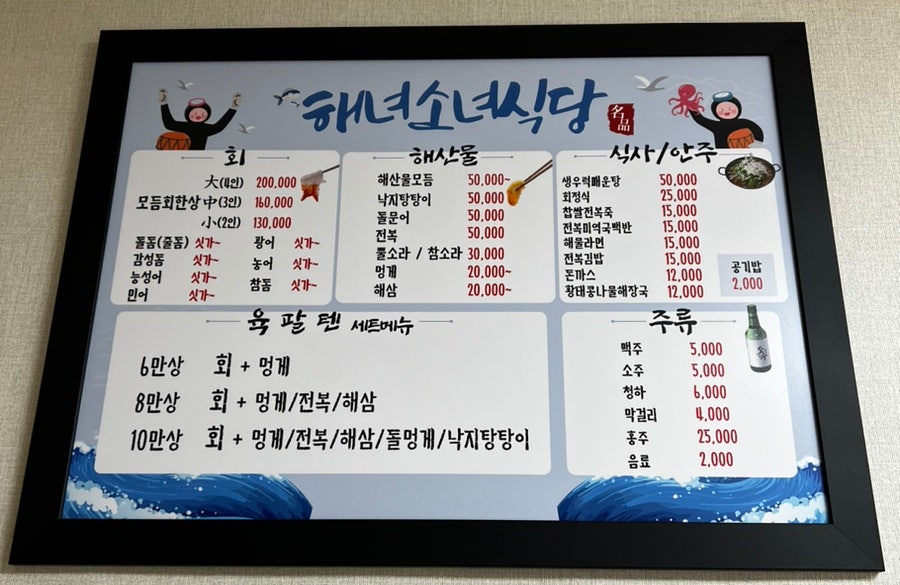 해녀소녀식당
名品
회
大(4인) 200,000
모듬회한상 中(3인) 160,000
小(2인) 130,000
돌돔(줄돔) 싯가~ 광어 싯가~
감성돔 싯가~ 농어 싯가~
능성어 싯가~ 참돔 싯가~
민어 싯가~
해산물
해산물모듬 50,000~
낙지탕탕이 50,000
돌문어 50,000
전복 50,000
뿔소라 / 참소라 30,000
멍게 20,000~
해삼 20,000~
식사/안주
생우럭매운탕 50,000
회정식 25,000
찹쌀전복죽 15,000
전복미역국백반 15,000
해물라면 15,000
전복김밥 15,000
돈까스 12,000
황태콩나물해장국 12,000
공기밥
2,000
육팔텐 세트메뉴
6만상 회 + 멍게
8만상 회 + 멍게/전복/해삼
10만상 회 + 멍게/전복/해삼/돌멍게/낙지탕탕이
주류
맥주 5,000
소주 5,000
청하 6,000
막걸리 4,000
홍주 25,000
음료 2,000